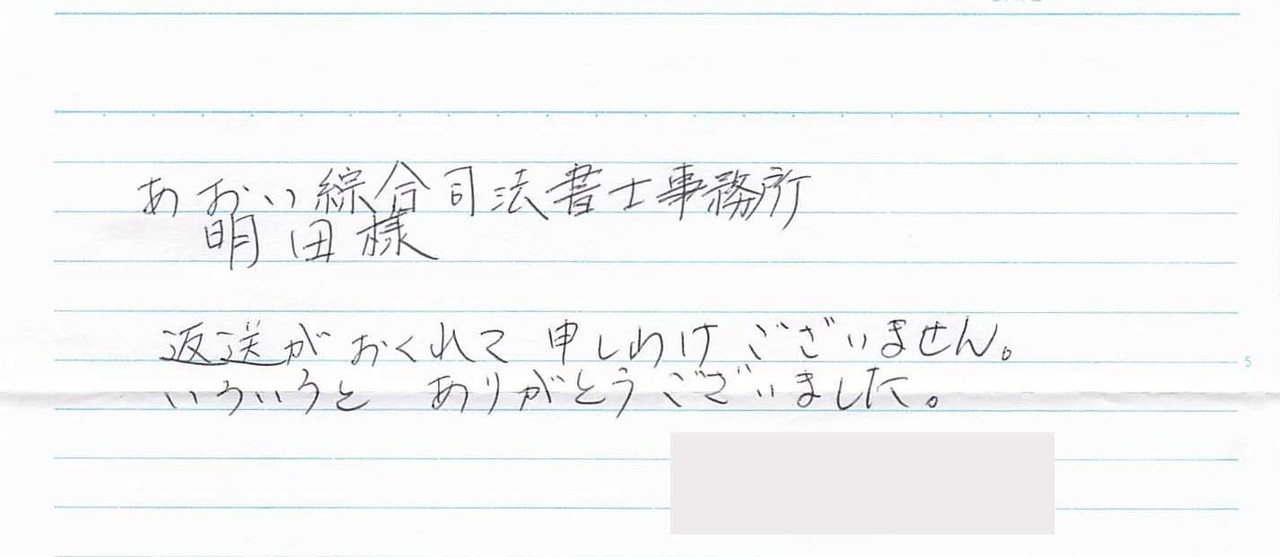 あおい綜合司法書士事務所
明田様
返送がおくれて 申しわけございません。
いろいろと ありがとうございました。
5